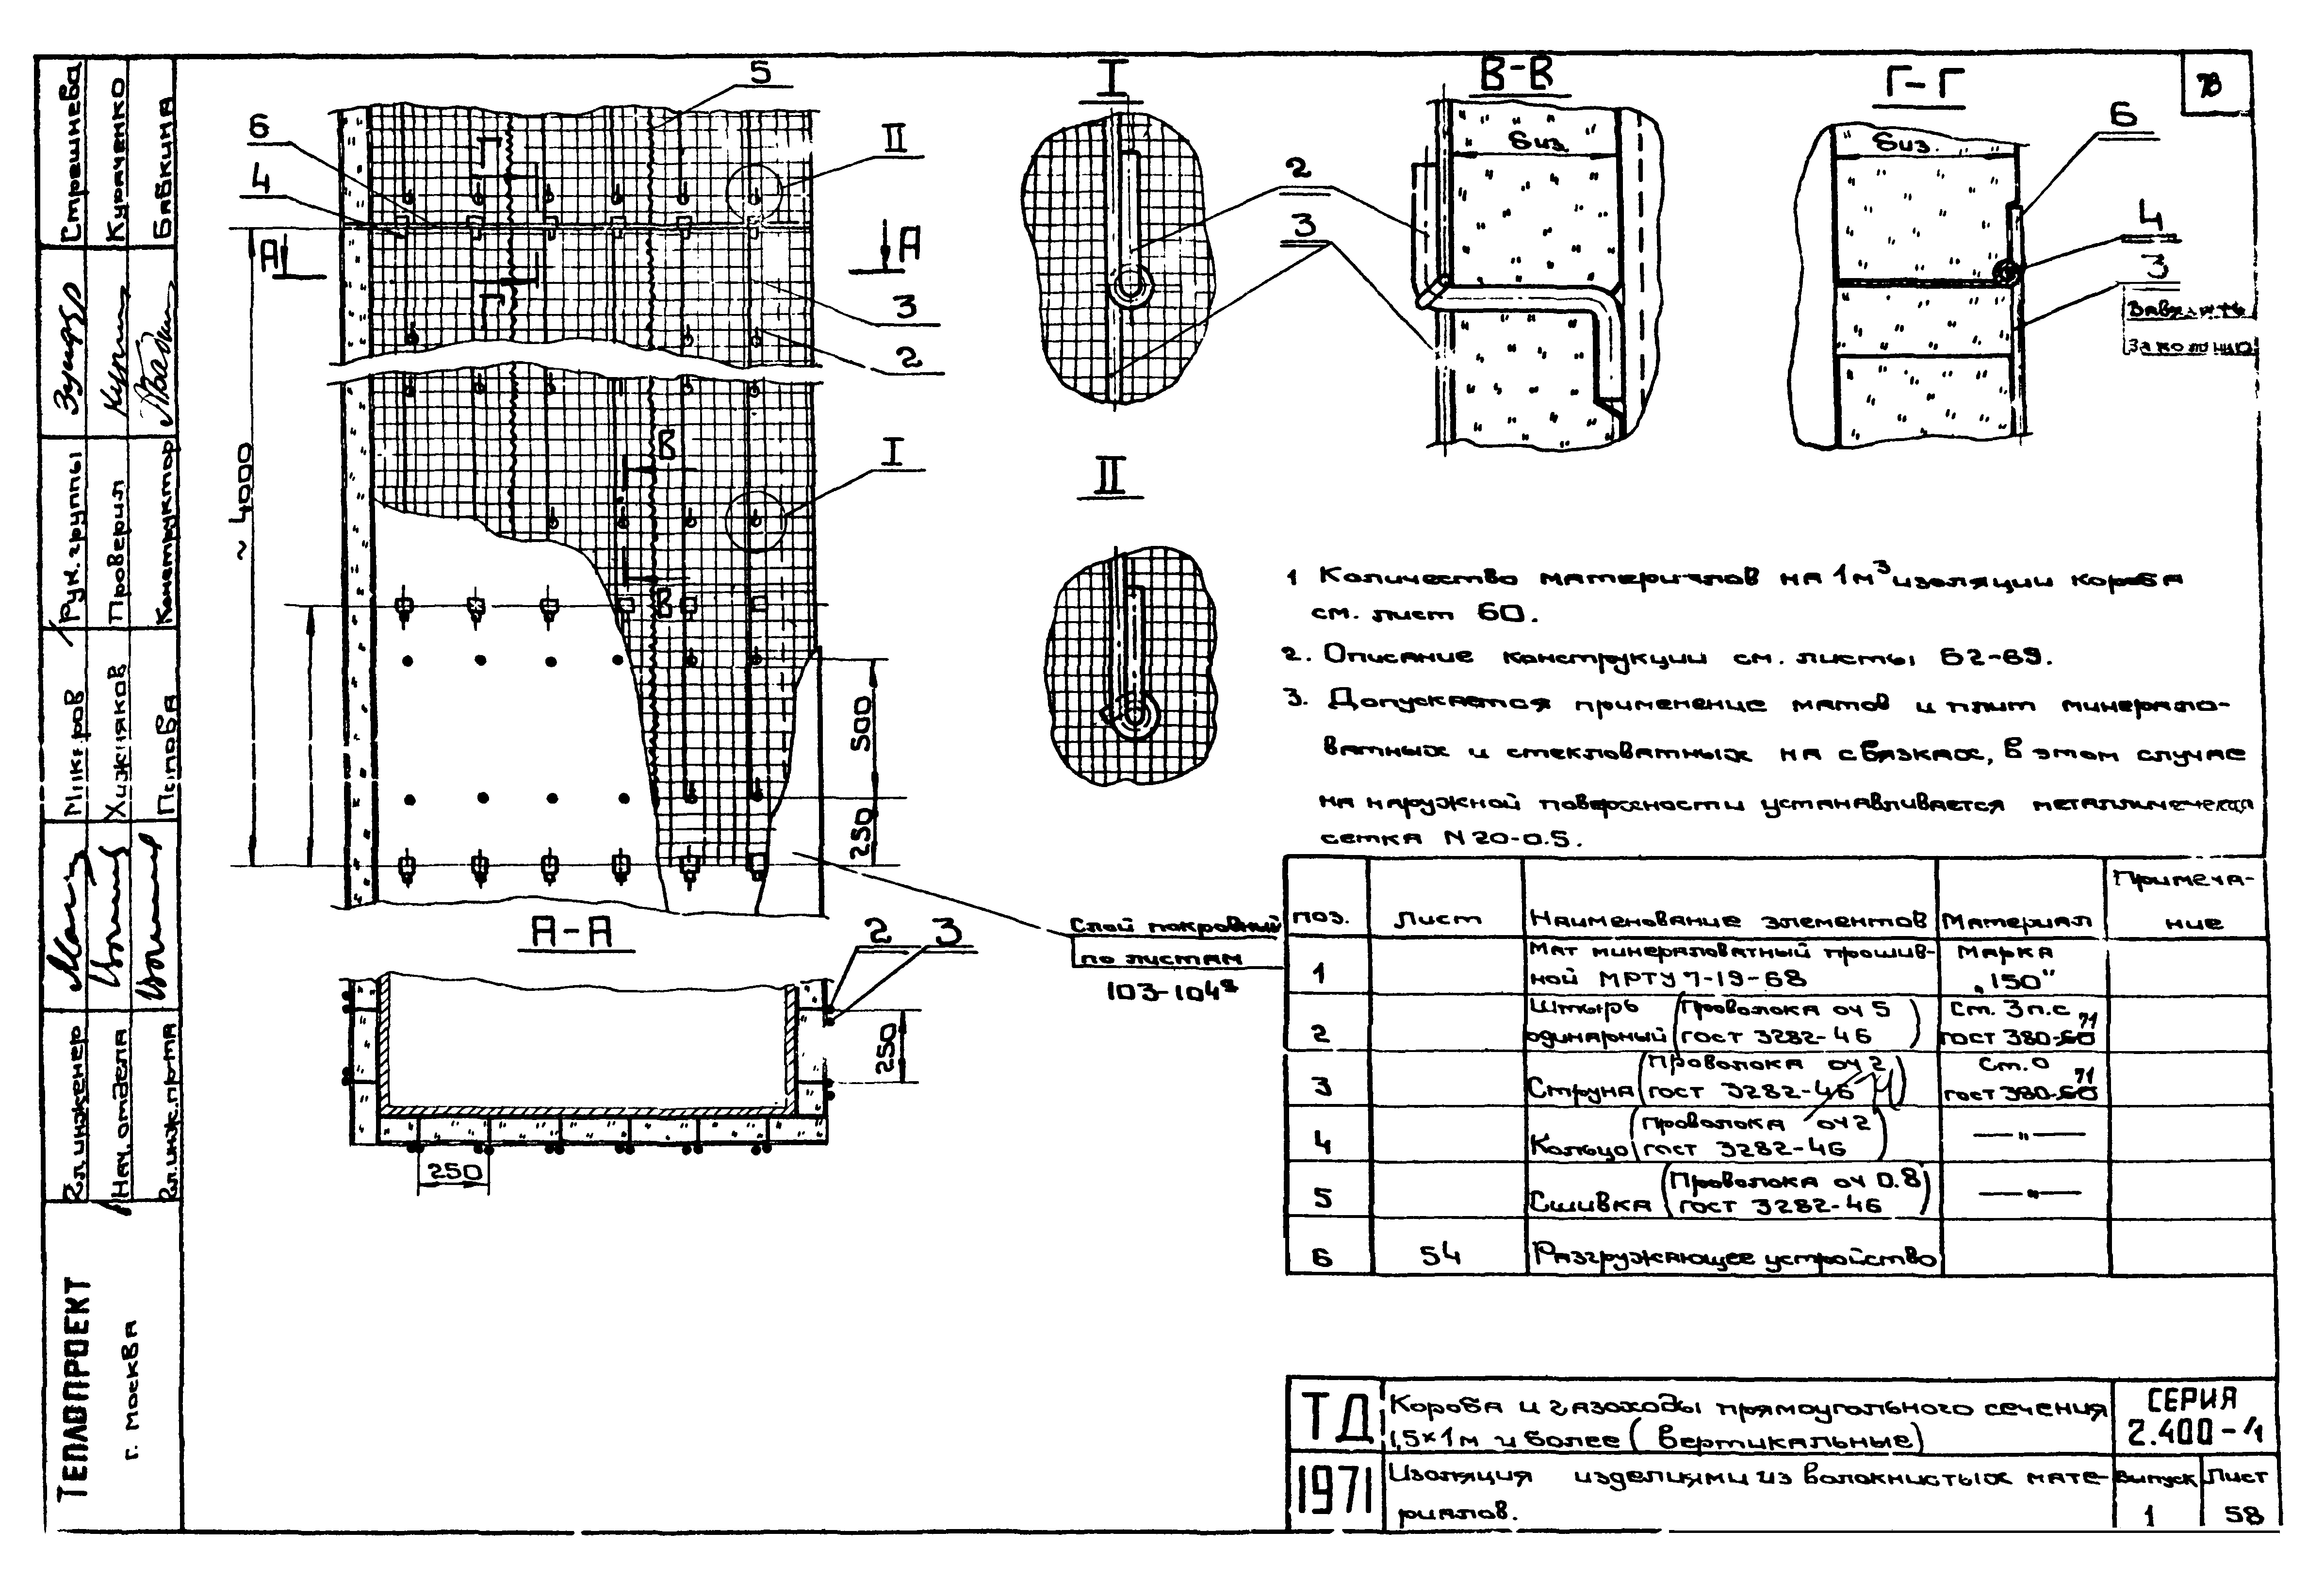 78
5
6
4
II
А
А
3
2
~ 4000
В
I
В
500
250
А-А
2
3
250
250
I
II
2
3
В-В
биз.
Г-Г
биз.
6
4
3
Слой покровный
по листам
103-104
1 Количество материалов на 1м³ изоляции короба
см. лист 60.
2. Описание конструкции см. листы 62-69.
3. Допускается применение матов и плит минерало-
ватных и стекловатных на связках, в этом случае
на наружной поверхности устанавливается металлическая
сетка N 20-0.5.
поз. Лист Наименование элементов Материал Примеча-
ние
1 Мат минераловатный прошив- Марка
ной МРТУ 7-19-68 „150"
2 Штырь (Проволока оч 5 Ст. 3п.с
одинарный ГОСТ 3282-46) ГОСТ 380-60 71
3 Струна (Проволока оч 2 Ст. 0
ГОСТ 3282-46) ГОСТ 380-60 71
4 Кольцо (Проволока оч 2 — " —
ГОСТ 3282-46)
5 Сшивка (Проволока оч 0.8 — " —
ГОСТ 3282-46)
6 54 Разгружающее устройство
ТД
1971
Короба и газоходы прямоугольного сечения
1,5×1м и более (вертикальные)
Изоляция изделиями из волокнистых мате-
риалов.
СЕРИЯ
2.400-4
Выпуск
1
Лист
58
ТЕПЛОПРОЕКТ
г. Москва
Гл. инженер
Нач. отдела
Гл. инж. пр-та
Хижняков
Попова
Рук. группы
Проверил
Конструктор
Стрешнева
Бабкина